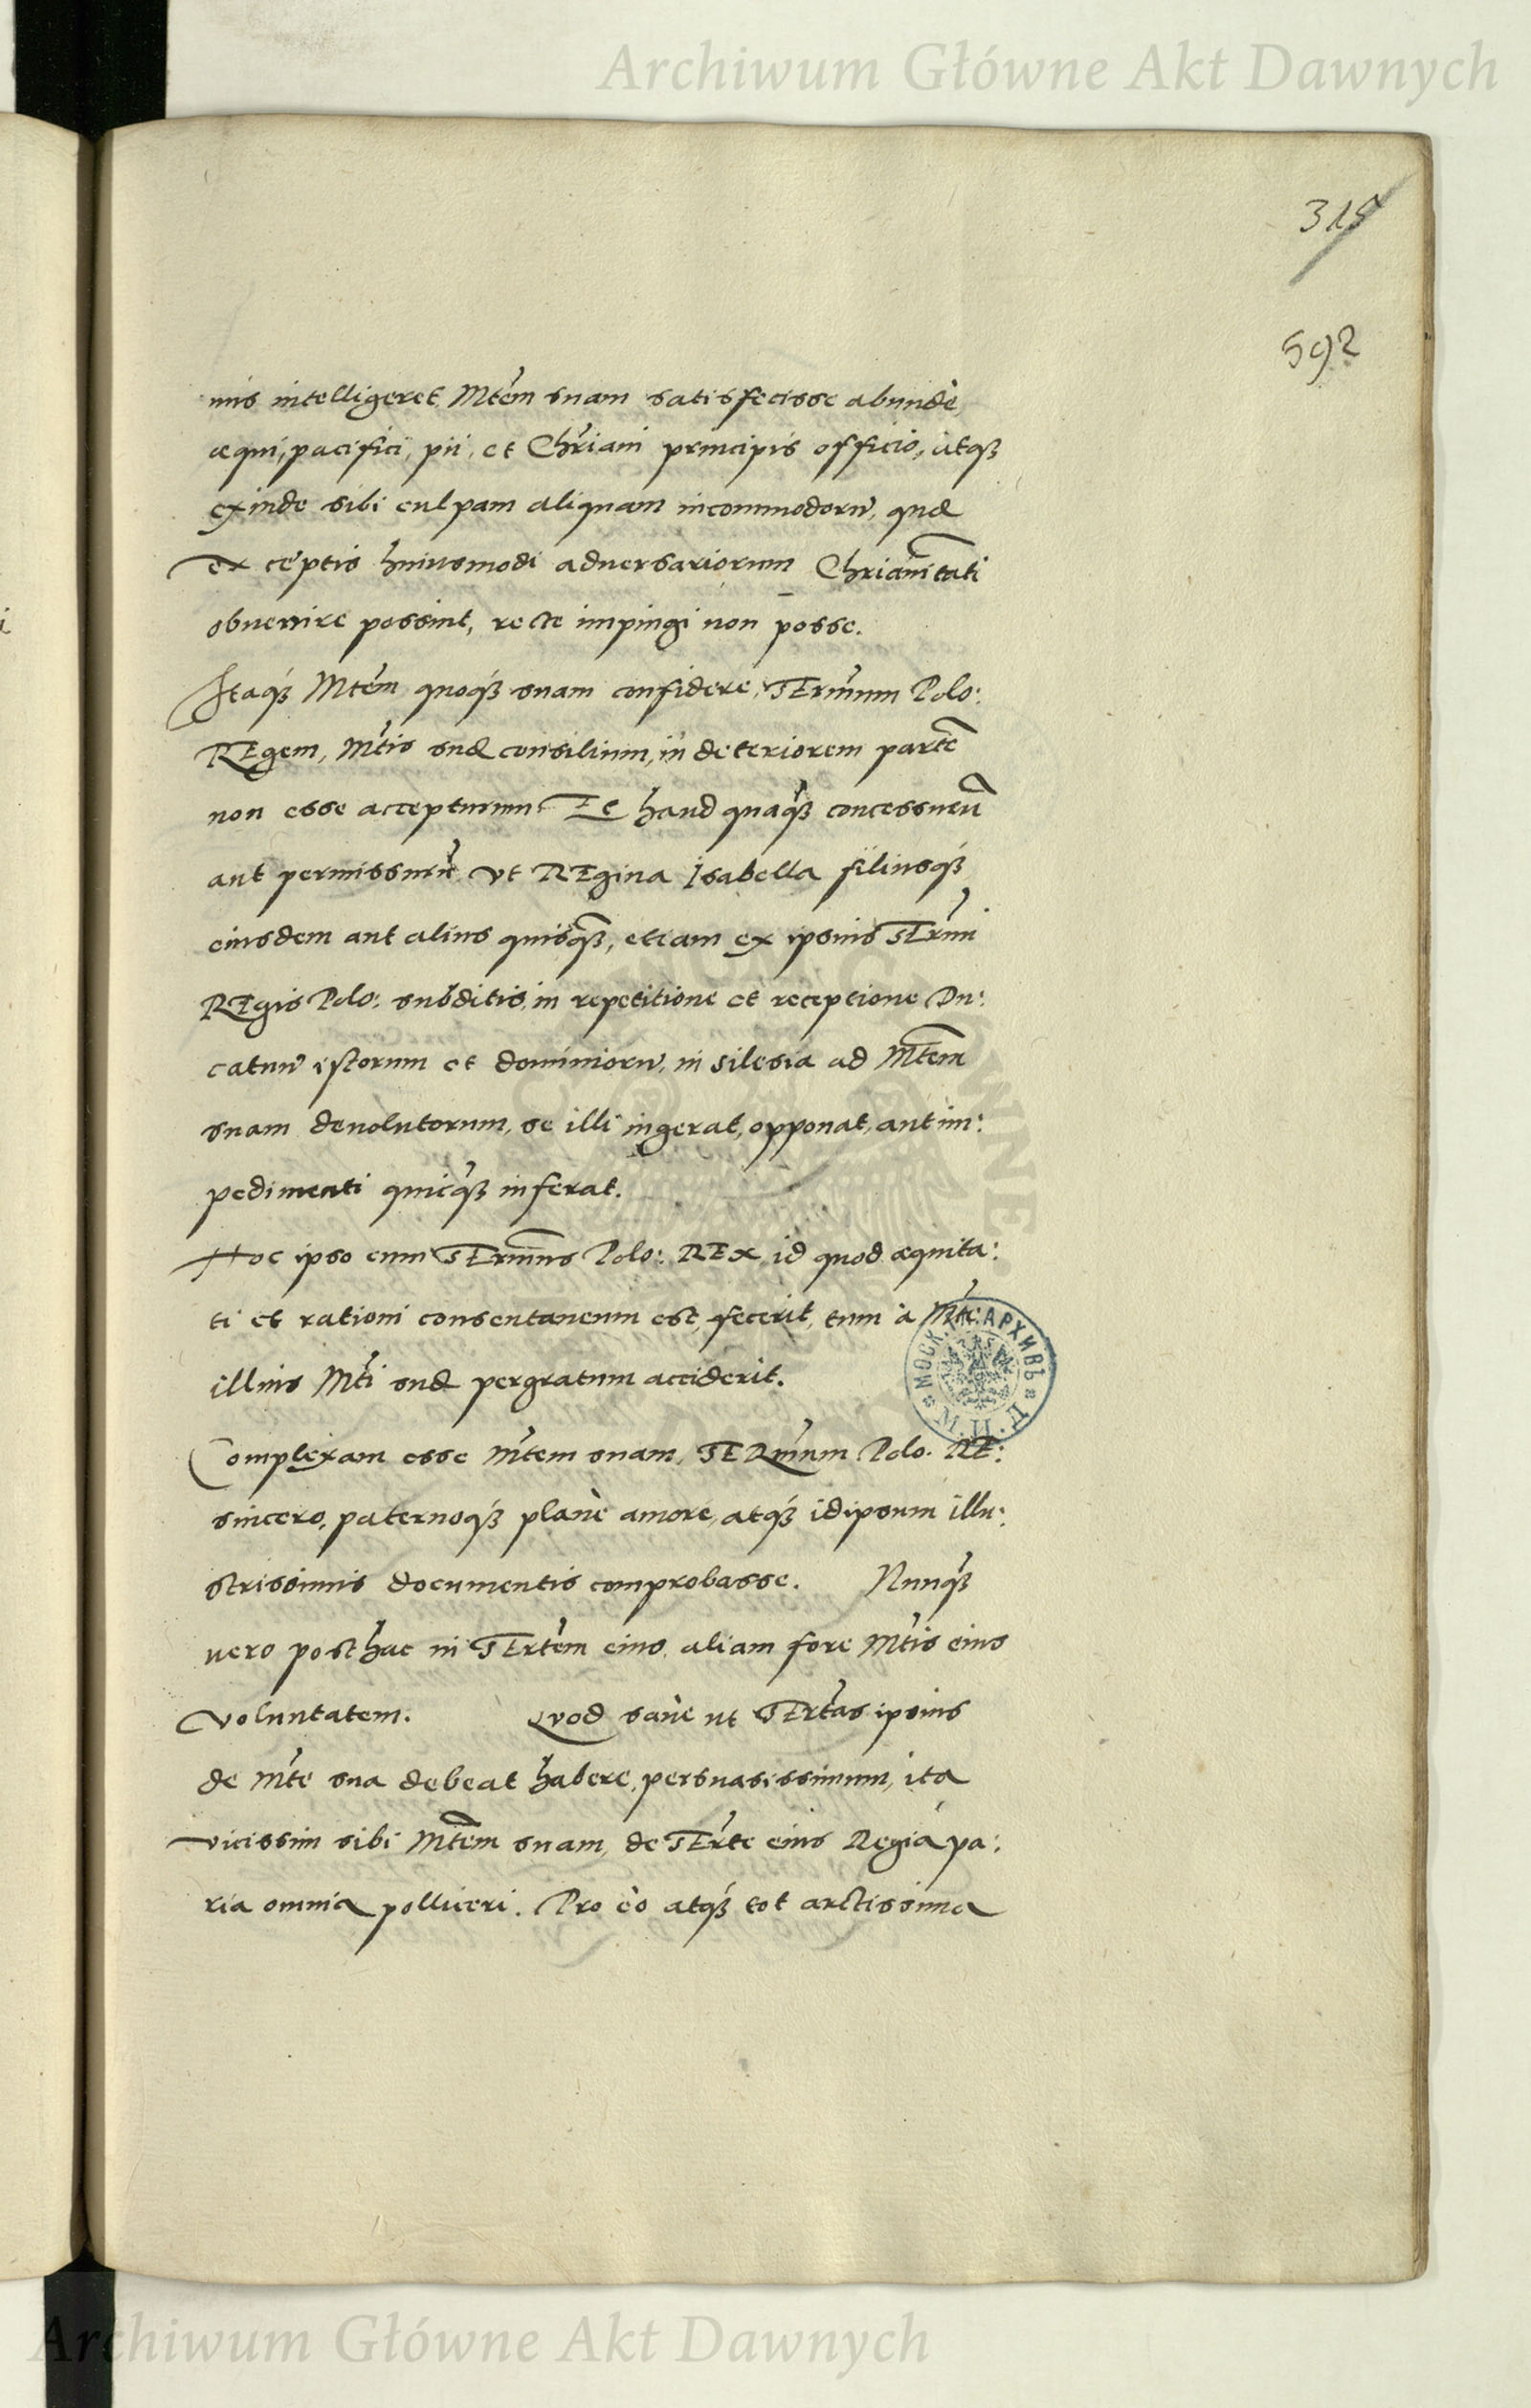 Archiwum Główne Akt Dawnych
315
592
mis intelligeret, Mtem suam satisfecisse abunde,
æqui, pacifici, pii, et Chriani principis officio, utq3
exinde sibi culpam aliquam incommodorũ, quæ
ex cęptis huiusmodi adversariorum Chrianitati
obvenire possint, recte impingi non posse.
Itaq3 Mtem quoq3 suam confidere, SErmum Polo:
REgem, Mtis suæ consilium, in deteriorem partẽ
non esse accepturum Et haud quaq3 concessurũ
aut permissurũ, Vt REgina Isabella filiusq3
eiusdem aut alius quisq3, etiam ex ipsius SErmi
REgis Polo: subditis, in repetitione et receptione Du:
catuũ istorum et dominiorũ, in Silesia ad Mtem
suam devolutorum, se illi ingerat, opponat, aut im:
pedimenti quicq3 inferat.
Hoc ipso cum SErmus Polo: REx, id quod æquita:
ti et rationi consentaneum est, fecerit, tum à Mte:
illius Mti suæ pergratum acciderit.
Complexam esse Mtem suam, SERmum Polo. RE:
sincero, paternoq3 planè amore, atq3 idipsum illu:
strissimis documentis comprobasse. Nunq3
vero posthac in SErtem eius, aliam fore Mtis eius
voluntatem. Qvod sanè ut SErtas ipsius
de Mte sua debeat habere, persuasissimum, ita
vicissim sibi Mtem suam, de SErte eius Regià pa:
ria omnia polliceri. Pro eo atq3 tot arctissima
МОСК. АРХИВЪ
Archiwum Główne Akt Dawnych